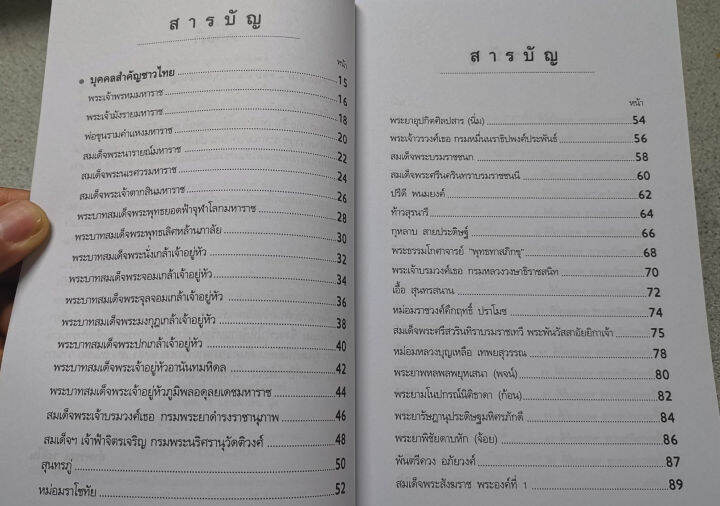 สารบัญ
หน้า
• บุคคลสำคัญชาวไทย 15
พระเจ้าพรหมมหาราช 16
พระเจ้ามังรายมหาราช 18
พ่อขุนรามคำแหงมหาราช 20
สมเด็จพระนารายณ์มหาราช 22
สมเด็จพระนเรศวรมหาราช 24
สมเด็จพระเจ้าตากสินมหาราช 26
พระบาทสมเด็จพระพุทธยอดฟ้าจุฬาโลกมหาราช 28
พระบาทสมเด็จพระพุทธเลิศหล้านภาลัย 30
พระบาทสมเด็จพระนั่งเกล้าเจ้าอยู่หัว 32
พระบาทสมเด็จพระจอมเกล้าเจ้าอยู่หัว 34
พระบาทสมเด็จพระจุลจอมเกล้าเจ้าอยู่หัว 36
พระบาทสมเด็จพระมงกุฎเกล้าเจ้าอยู่หัว 38
พระบาทสมเด็จพระปกเกล้าเจ้าอยู่หัว 40
พระบาทสมเด็จพระเจ้าอยู่หัวอานันทมหิดล 42
พระบาทสมเด็จพระเจ้าอยู่หัวภูมิพลอดุลยเดชมหาราช 44
สมเด็จพระเจ้าบรมวงศ์เธอ กรมพระยาดำรงราชานุภาพ 46
สมเด็จฯ เจ้าฟ้าจิตรเจริญ กรมพระนริศรานุวัดติวงศ์ 48
สุนทรภู่ 50
หม่อมราโชทัย 52
สารบัญ
หน้า
พระยาอุปกิตศิลปสาร (นิ่ม) 54
พระเจ้าวรวงศ์เธอ กรมหมื่นนราธิปพงศ์ประพันธ์ 56
สมเด็จพระบรมราชชนก 58
สมเด็จพระศรีนครินทราบรมราชชนนี 60
ปรีดี พนมยงค์ 62
ท้าวสุรนารี 64
กุหลาบ สายประดิษฐ์ 66
พระธรรมโกศาจารย์ "พุทธทาสภิกขุ" 68
พระเจ้าบรมวงศ์เธอ กรมหลวงวงษาธิราชสนิท 70
เอื้อ สุนทรสนาน 72
หม่อมราชวงศ์คึกฤทธิ์ ปราโมช 74
สมเด็จพระศรีสวรินทิราบรมราชเทวี พระพันวัสสาอัยยิกาเจ้า 75
หม่อมหลวงบุญเหลือ เทพยสุวรรณ 78
พระยาพหลพลพยุหเสนา (พจน์) 80
พระยามโนปกรณ์นิติธาดา (ก้อน) 82
พระยารัษฎานุประดิษฐมหิศรภักดี 84
พระยาพิชัยดาบหัก (จ้อย) 86
พันตรีควง อภัยวงศ์ 87
สมเด็จพระสังฆราช พระองค์ที่ 1 89